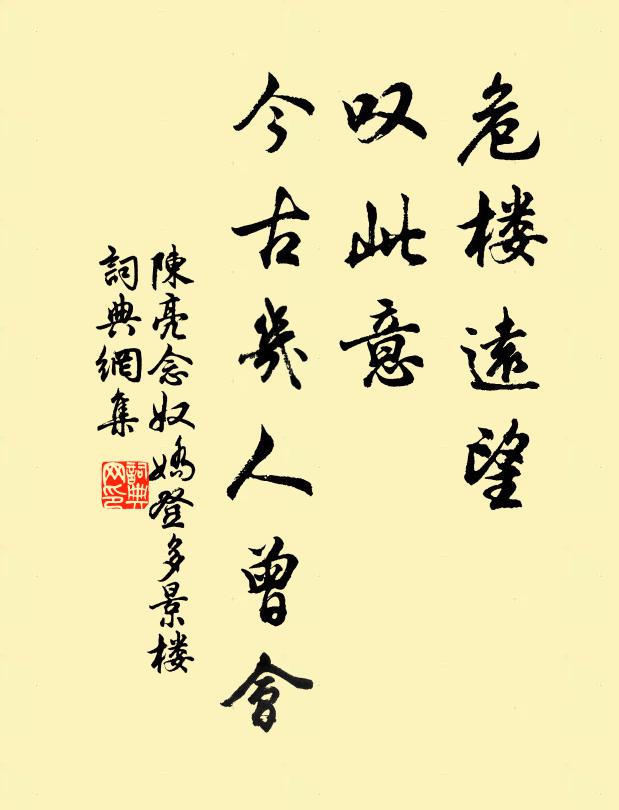 危楼遠望
叹此意
今古幾人曾會
陳亮念奴嬌登多景楼
詞典網集
詞典网印